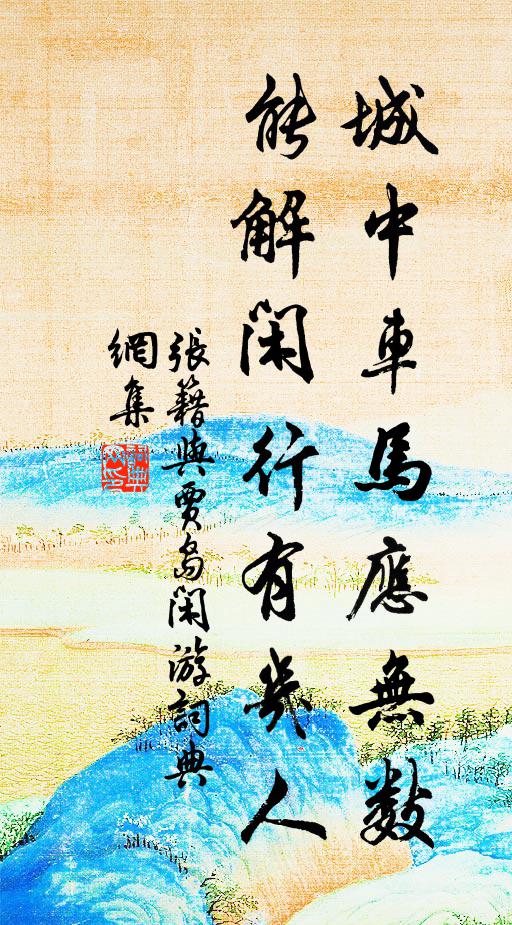 城中車馬應無數
能解閑行有幾人
張籍與賈島閑游詞典
網集